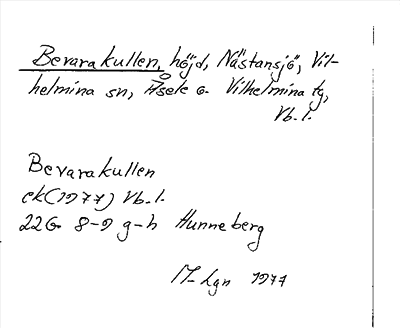 Bevarakullen, höjd, Nästansjö, Vil-
helmina sn, Åsele o. Vilhelmina tg,
Vb. l.
Bevarakullen
ek (1977) Vb. l.
22G 8-9 g-h Hunneberg
M-Lgn 1977